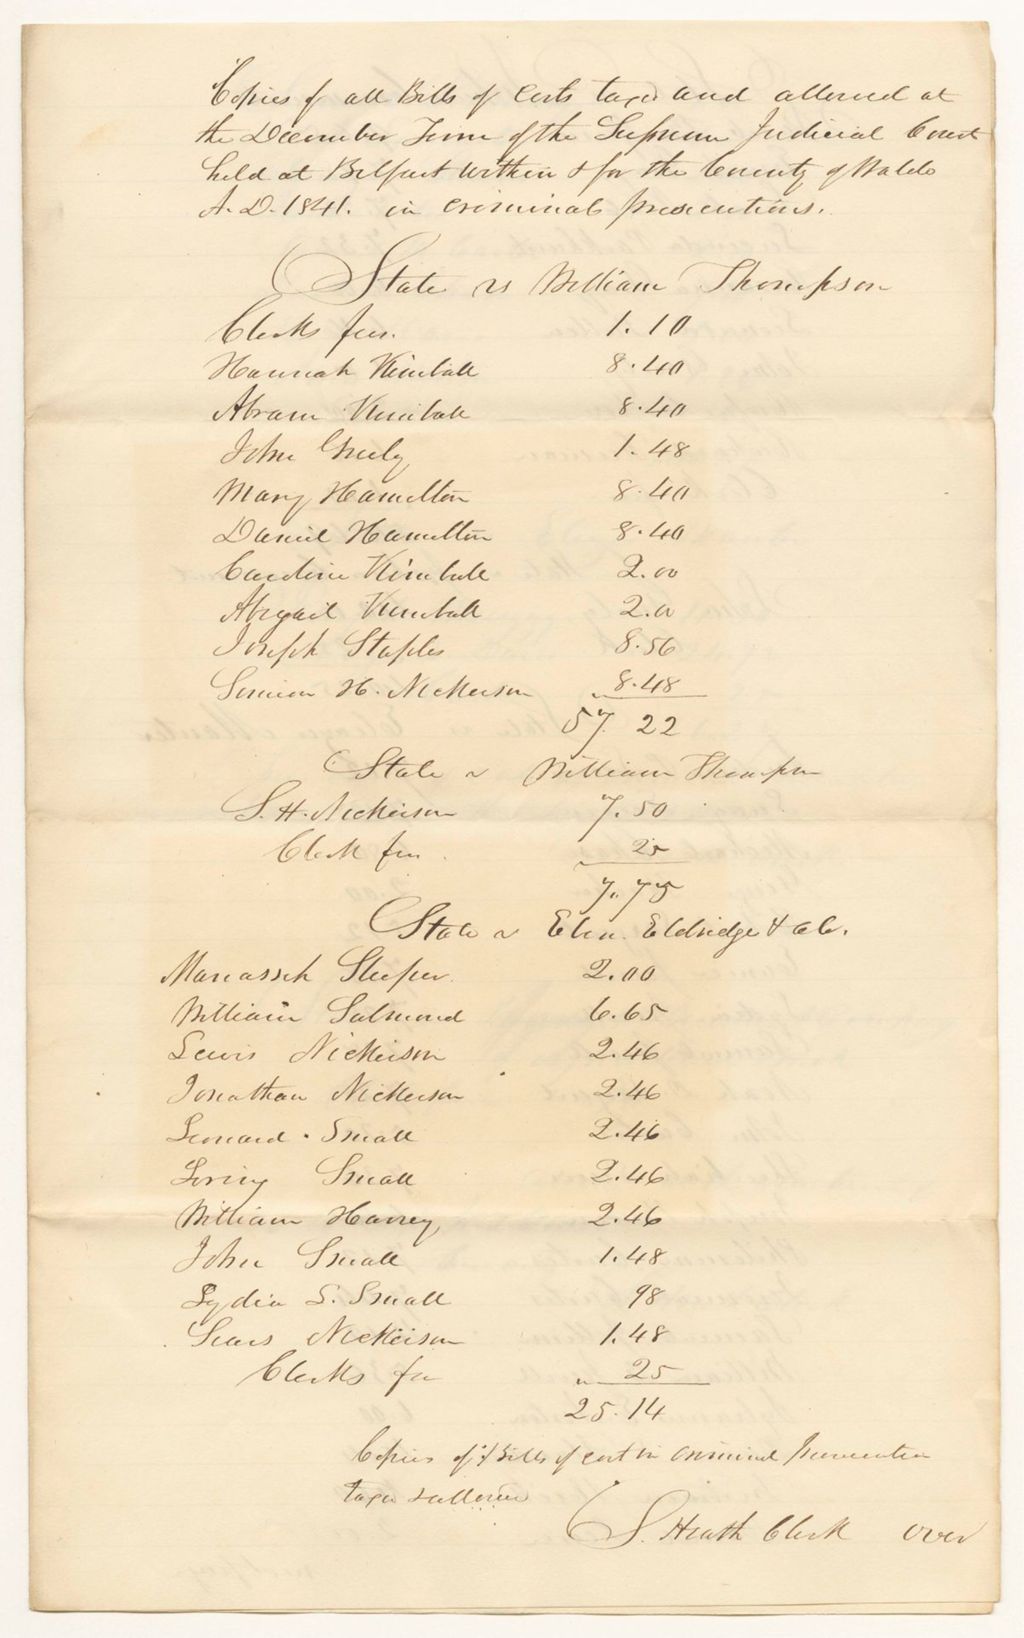 Copies of all Bills of Costs taxed and allowed at
the December Term of the Supreme Judicial Court
held at Belfast within & for the County of Waldo
A.D. 1841. in criminal prosecutions.
State vs William Thompson
Clerks fees. 1.10
Hannah Kimball 8.40
Abram Kimball 8.40
John Greely 1.48
Mary Hamilton 8.40
Daniel Hamilton 8.40
Caroline Kimball 2.00
Abigail Kimball 2.00
Joseph Staples 8.56
Simeon H. Nickerson 8.48
57.22
State vs William Thompson
S. H. Nickerson 7.50
Clerk fees 25
7.75
State vs Eben. Eldridge & al.
Manasseh Sleeper. 2.00
William Salmond 6.65
Lewis Nickerson 2.46
Jonathan Nickerson 2.46
Leonard Small 2.46
Loring Small 2.46
William Harvey 2.46
John Small 1.48
Lydia S. Small 98
Sears Nickerson 1.48
Clerks fee 25
25.14
Copies of Bills of cost in criminal prosecution
taxed & allowed
S. Heath Clerk over